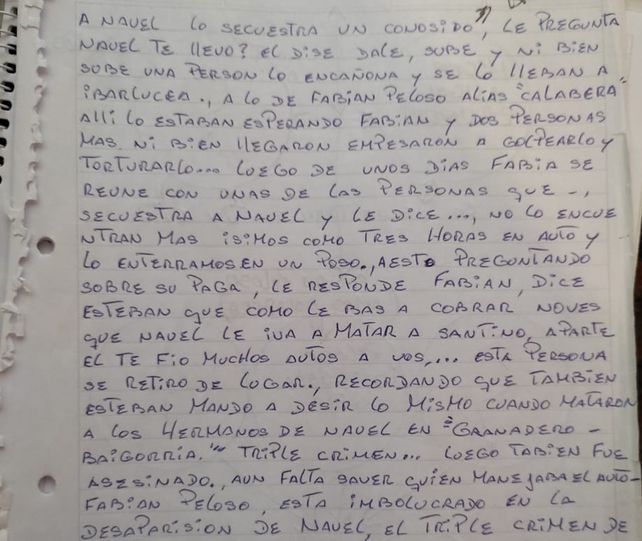 A NAUEL LO SECUESTRA UN CONOSIDO, LE PREGUNTA
NAUEL TE LLEVO? EL DISE DALE, SUBE Y NI BIEN
SUBE UNA PERSON LO ENCAÑONA Y SE LO LLEBAN A
IBARLUCEA., A LO DE FABIAN PELOSO ALIAS "CALABERA"
ALLI LO ESTABAN ESPERANDO FABIAN Y DOS PERSONAS
MAS NI BIEN LLEGARON EMPESARON A GOLPEARLO Y
TORTURARLO... LUEGO DE UNOS DIAS FABIA SE
REUNE CON UNAS DE LAS PERSONAS QUE -,
SECUESTRA A NAUEL Y LE DICE..., NO LO ENCUE
NTRAN MAS ISIMOS COMO TRES HORAS EN AUTO Y
LO ENTERRAMOS EN UN POSO., AESTO PREGUNTANDO
SOBRE SU PAGA, LE RESPONDE FABIAN, DICE
ESTEBAN QUE COMO LE BAS A COBRAR NOVES
QUE NAUEL LE IVA A MATAR A SANTINO, APARTE
EL TE FIO MUCHOS AUTOS A VOS,... ESTA PERSONA
SE RETIRO DE LOGAR., RECORDANDO QUE TAMBIEN
ESTEBAN MANDO A DESIR LO MISMO CUANDO MATARON
A LOS HERMANOS DE NAUEL EN "GRANADERO -
BAIGORRIA." TRIPLE CRIMEN... LUEGO TABIEN FUE
ASESINADO., AUN FALTA SAVER QUIEN MANEJABA EL AUTO-
FABIAN PELOSO, ESTA IMBOLUCRADO EN LA
DESAPARISION DE NAUEL, EL TRIPLE CRIMEN DE